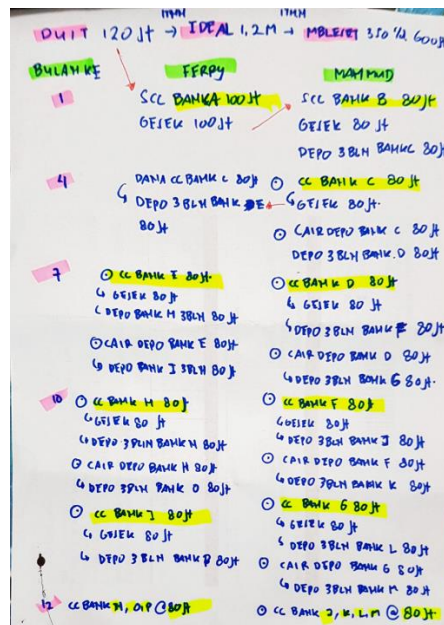 1THN 1THN
DUIT 120 Jt → IDEAL 1,2 M → MBLEIZI 350 1/2 600 Jt
BULAN KE FERPY MAHMUD
1
SCC BANK A 100 Jt
GESEK 100 Jt
SCC BANK B 80 Jt
GESEK 80 Jt
DEPO 3 BLN BANK C 80 Jt
4
DANA CC BANK C 80 Jt
DEPO 3 BLN BANK E
80 Jt
CC BANK C 80 Jt
GESEK 80 Jt.
CAIR DEPO BANK C 80 Jt
DEPO 3 BLN BANK D 80 Jt
7
CC BANK E 80 Jt.
GESEK 80 Jt
DEPO BANK H 3 BLN 80 Jt
CAIR DEPO BANK E 80 Jt
DEPO BANK I 3 BLN 80 Jt
CC BANK D 80 Jt
GESEK 80 Jt
DEPO 3 BLN BANK F 80 Jt
CAIR DEPO BANK D 80 Jt
DEPO 3 BLN BANK G 80 Jt.
10
CC BANK H 80 Jt
GESEK 80 Jt
DEPO 3 BLN BANK N 80 Jt
CAIR DEPO BANK H 80 Jt
DEPO 3 BLN BANK O 80 Jt
CC BANK I 80 Jt
GESEK 80 Jt
DEPO 3 BLN BANK P 80 Jt
CC BANK F 80 Jt
GESEK 80 Jt
DEPO 3 BLN BANK J 80 Jt
CAIR DEPO BANK F 80 Jt
DEPO 3 BLN BANK K 80 Jt
CC BANK G 80 Jt
GESEK 80 Jt
DEPO 3 BLN BANK L 80 Jt
CAIR DEPO BANK G 80 Jt
DEPO 3 BLN BANK M 80 Jt
12
CC BANK N, O, P @ 80 Jt
CC BANK J, K, L, M @ 80 Jt